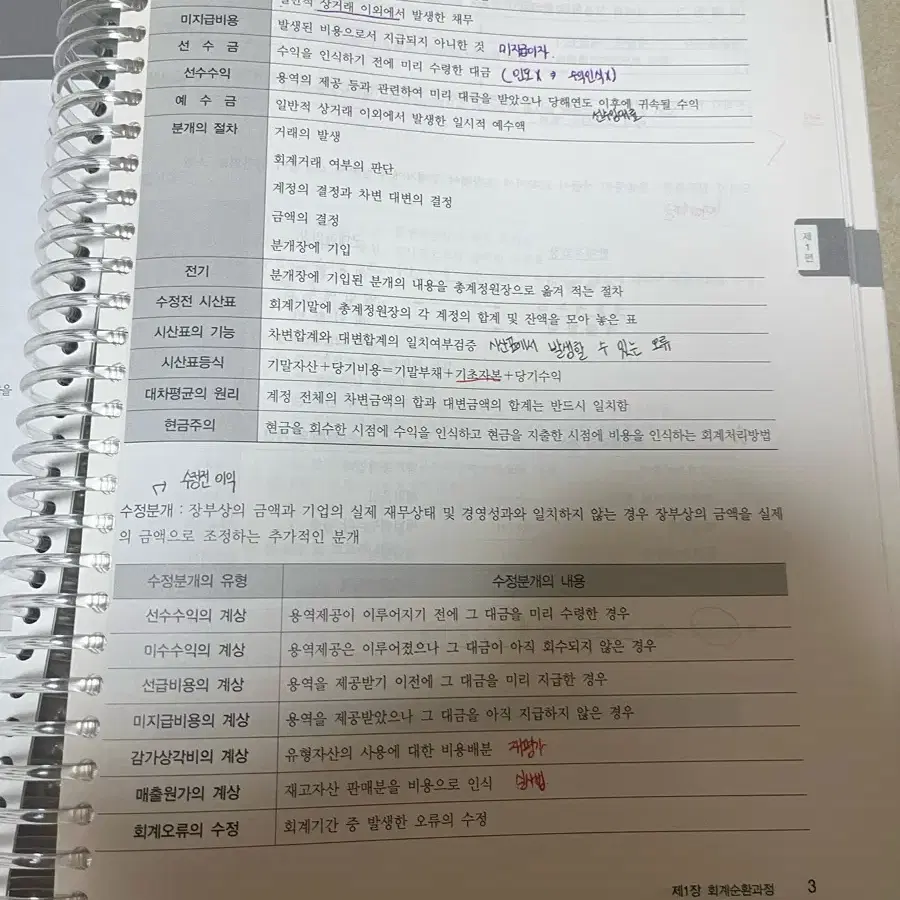 일반적 상거래 이외에서 발생한 채무
미지급비용 발생된 비용으로서 지급되지 아니한 것 미지급이자
선 수 금 수익을 인식하기 전에 미리 수령한 대금
선수수익 용역의 제공 등과 관련하여 미리 대금을 받았으나 당해연도 이후에 귀속될 수익
선수임대료
예 수 금 일반적 상거래 이외에서 발생한 일시적 예수액
분개의 절차 거래의 발생
회계거래 여부의 판단
계정의 결정과 차변 대변의 결정
금액의 결정
분개장에 기입
제1편
전기 분개장에 기입된 분개의 내용을 총계정원장으로 옮겨 적는 절차
수정전 시산표 회계기말에 총계정원장의 각 계정의 합계 및 잔액을 모아 놓은 표
시산표의 기능 차변합계와 대변합계의 일치여부검증 시산표에서 발생할 수 있는 오류
시산표등식 기말자산+당기비용=기말부채+기초자본+당기수익
대차평균의 원리 계정 전체의 차변금액의 합과 대변금액의 합계는 반드시 일치함
현금주의 현금을 회수한 시점에 수익을 인식하고 현금을 지출한 시점에 비용을 인식하는 회계처리방법
수정전 이익
수정분개 : 장부상의 금액과 기업의 실제 재무상태 및 경영성과와 일치하지 않는 경우 장부상의 금액을 실제
의 금액으로 조정하는 추가적인 분개
수정분개의 유형 수정분개의 내용
선수수익의 계상 용역제공이 이루어지기 전에 그 대금을 미리 수령한 경우
미수수익의 계상 용역제공은 이루어졌으나 그 대금이 아직 회수되지 않은 경우
선급비용의 계상 용역을 제공받기 이전에 그 대금을 미리 지급한 경우
미지급비용의 계상 용역을 제공받았으나 그 대금을 아직 지급하지 않은 경우
감가상각비의 계상 유형자산의 사용에 대한 비용배분 재평가
매출원가의 계상 재고자산 판매분을 비용으로 인식 실사법
회계오류의 수정 회계기간 중 발생한 오류의 수정
제1장 회계순환과정 3